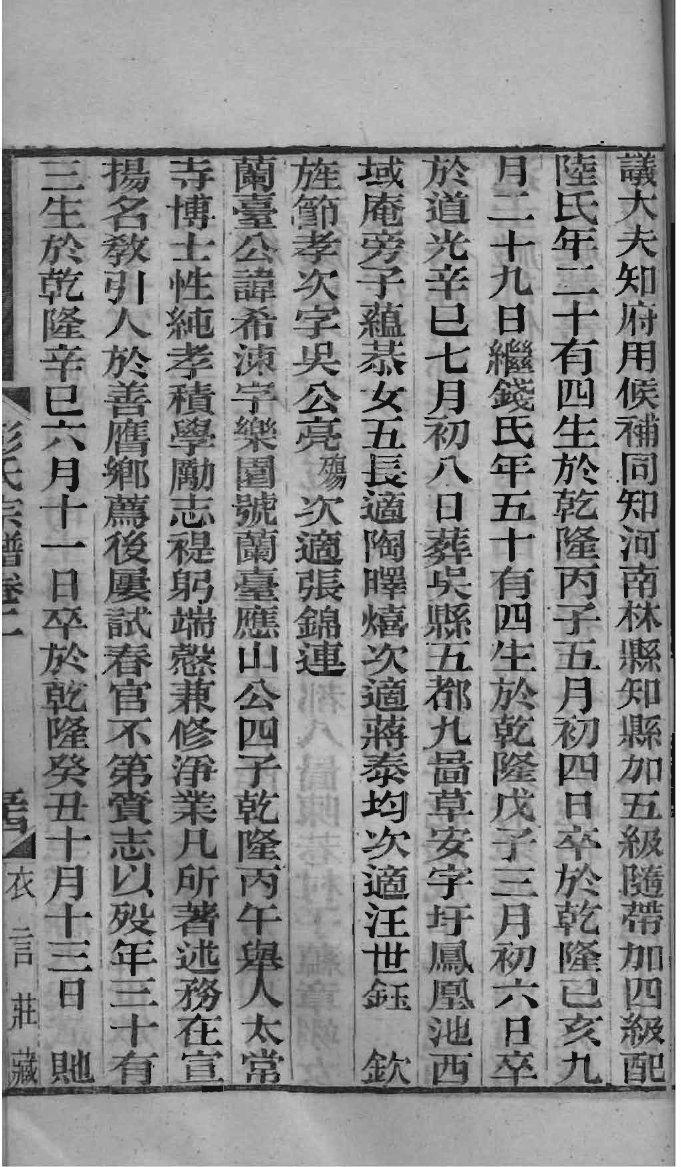 議大夫知府用候補同知河南林縣知縣加五級隨帶加四級配
陸氏年二十有四生於乾隆丙子五月初四日卒於乾隆己亥九
月二十九日繼錢氏年五十有四生於乾隆戊子三月初六日卒
於道光辛巳七月初八日葬吳縣五都九啚草安字圩鳳凰池西
域庵旁子蘊菾女五長適陶曎熺次適蔣泰均次適汪世鈺　欽
旌節孝次字吳公亮殤次適張錦連
蘭臺公諱希涑字樂園號蘭臺應山公四子乾隆丙午舉人太常
寺博士性純孝積學勵志禔躬端愨兼修淨業凡所著述務在宣
揚名教引人於善膺鄉薦後屢試春官不第賫志以歿年三十有
三生於乾隆辛巳六月十一日卒於乾隆癸丑十月十三日　貤
彭氏宗譜卷二
衣言莊藏